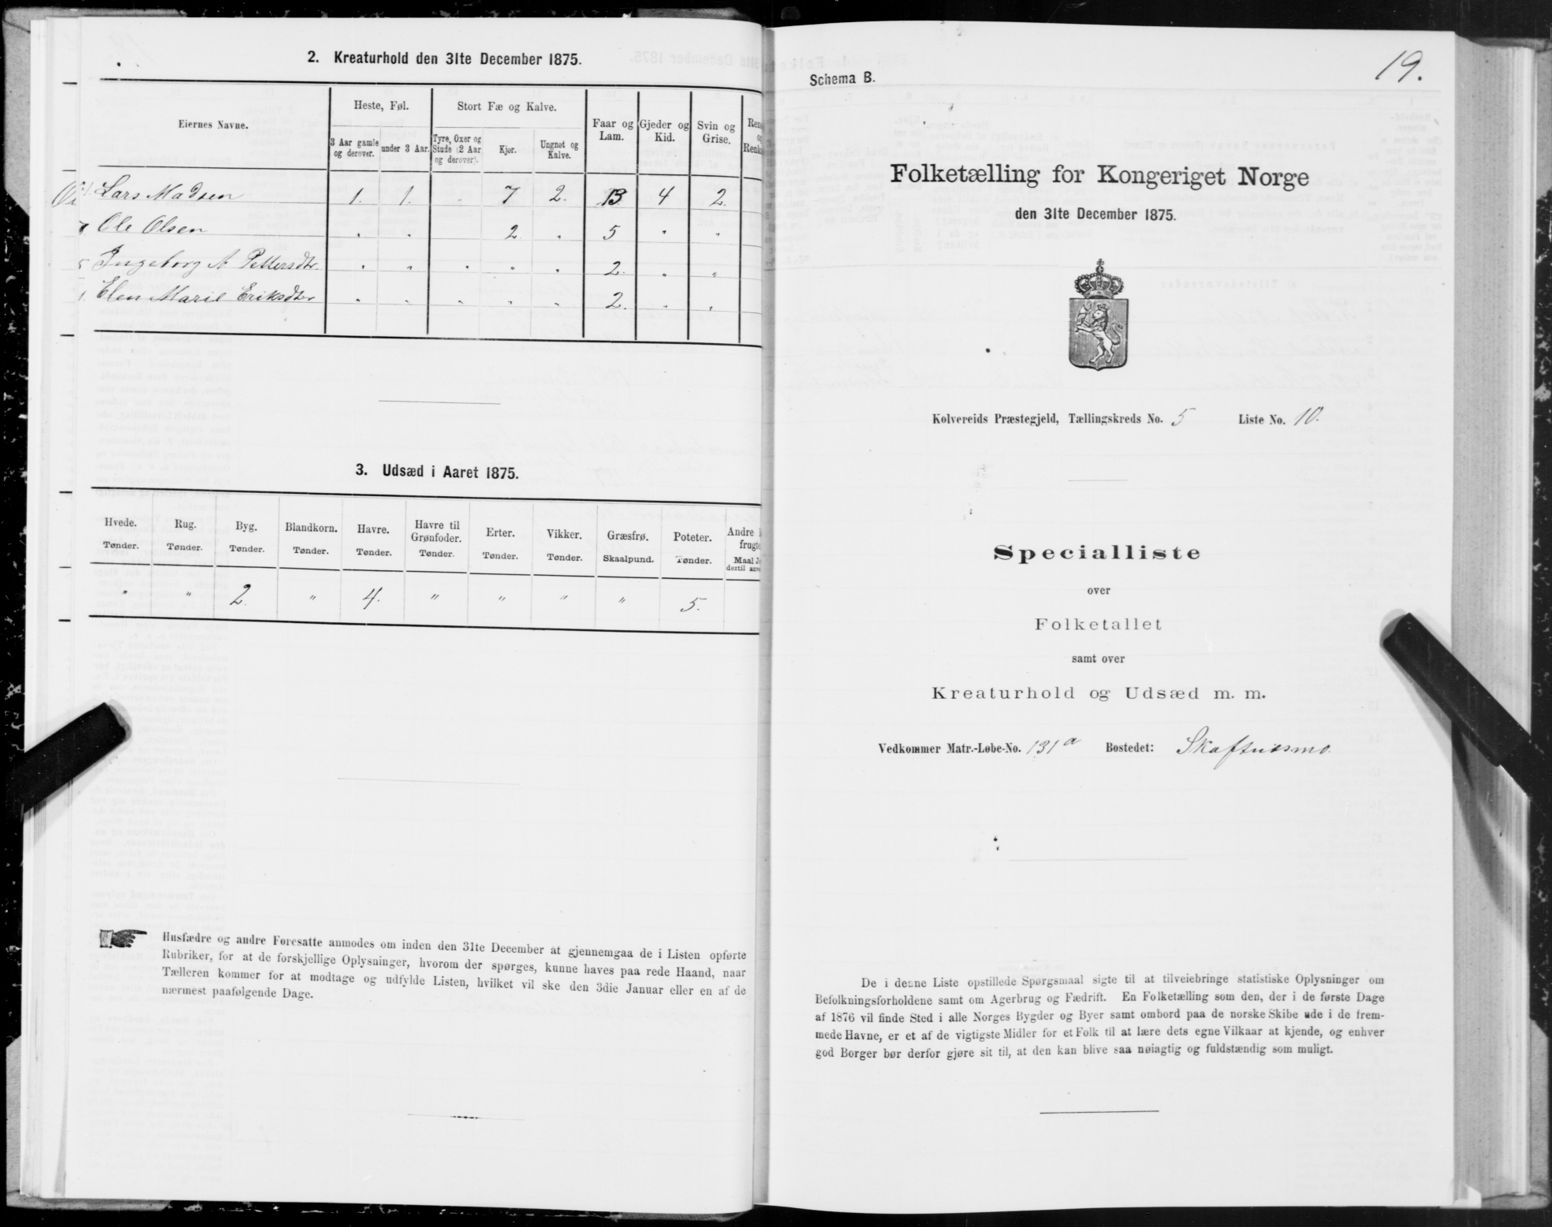 2. Kreaturhold den 31te December 1875.
Eiernes Navne.
Heste, Føl.
Stort Fæ og Kalve.
Faar og Lam.
Gjeder og Kid.
Svin og Grise.
3 Aar gamle og derover.
under 3 Aar.
Tyre, Oxer og Stude (2 Aar og derover).
Kjør.
Ungnøt og Kalve.
Lars Madsen 1. 1. . 7 2. 13 4 2.
Ole Olsen . . 2 . 5 . .
Ingeborg A Pettersdtr. " " . " . 2. . "
Elen Marie Eriksdtr . " " " . 2. . .
3. Udsæd i Aaret 1875.
Hvede. Rug. Byg. Blandkorn. Havre. Havre til Grønfoder. Erter. Vikker. Græsfrø. Poteter. Andre
Tønder. Tønder. Tønder. Tønder. Tønder. Tønder. Tønder. Tønder. Skaalpund. Tønder. Maal
" " 2. " 4. " " " " 5.
Husfædre og andre Foresatte anmodes om inden den 31te December at gjennemgaa de i Listen opførte
Rubriker, for at de forskjellige Oplysninger, hvorom der spørges, kunne haves paa rede Haand, naar
Tælleren kommer for at modtage og udfylde Listen, hvilket vil ske den 3die Januar eller en af de
nærmest paafølgende Dage.
19.
Schema B.
Folketælling for Kongeriget Norge
den 31te December 1875.
Kolvereids Præstegjeld, Tællingskreds No. 5 Liste No. 10.
Specialliste
over
Folketallet
samt over
Kreaturhold og Udsæd m. m.
Vedkommer Matr.-Løbe-No. 131 a Bostedet: Skaftnesmo.
De i denne Liste opstillede Spørgsmaal sigte til at tilveiebringe statistiske Oplysninger om
Befolkningsforholdene samt om Agerbrug og Fædrift. En Folketælling som den, der i de første Dage
af 1876 vil finde Sted i alle Norges Bygder og Byer samt ombord paa de norske Skibe ude i de frem-
mede Havne, er et af de vigtigste Midler for et Folk til at lære dets egne Vilkaar at kjende, og enhver
god Borger bør derfor gjøre sit til, at den kan blive saa nøiagtig og fuldstændig som muligt.